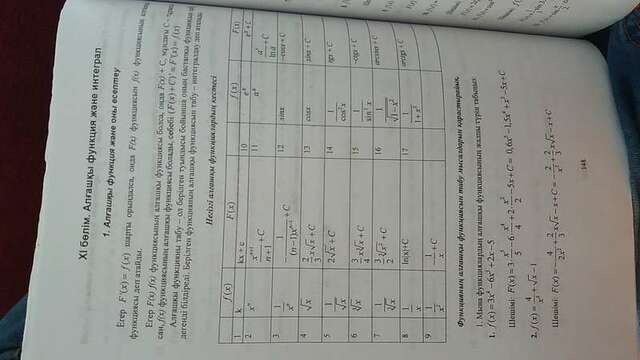 XI бөлім. Алғашқы функция және интеграл
1. Алғашқы функция және оны есептеу
Егер F'(x) = f(x) шарты орындалса, онда F(x) функциясын f(x) функциясының
функциясы деп атайды.
Егер F(x) f(x) функциясының алғашқы функциясы болса, онда F(x) + C, мұндағы C
сан, f(x) функциясының алғашқы функциясы болады, себебі (F(x)+C)' = F'(x) = f(x)
Алғашқы функцияны табу – ол берілген туындысы бойынша оның бастапқы функциясын
дегенді білдіреді. Берілген функцияның алғашқы функциясын табу – интегралдау деп атайды.
Негізгі алғашқы функциялардың кестесі
f(x) F(x) f(x) F(x)
1 k kx + c 10 e^x e^x + C
2 x^n x^(n+1)/(n+1) + C 11 a^x a^x/ln a + C
3 1/x^n 12 sinx -cosx + C
4 √x 2/3 x√x + C 13 cosx sinx + C
5 1/√x 2√x + C 14 1/cos²x tgx + C
6 ∛x 3/4 x∛x + C 15 1/sin²x -ctgx + C
7 1/∛x 3/2 ∛x² + C 16 1/√(1-x²) arcsinx + C
8 1/x ln|x|+C 17 1/(1+x²) arctgx + C
9 1/x² -1/x + C
Функцияның алғашқы функциясын табу мысалдарын қарастырайық.
1. Мына функциялардың алғашқы функциясының жалпы түрін табыңыз:
1. f(x) = 3x⁴ - 6x³ + 2x - 5
Шешімі: F(x) = 3·x⁵/5 - 6·x⁴/4 + 2·x²/2 - 5x + C = 0,6x⁵ - 1,5x⁴ + x² - 5x + C
2. f(x) = 4/x³ + √x - 1
Шешімі: F(x) = -4/2x² + 2/3 x√x - x + C = -2/x² + 2/3 x√x - x + C
148